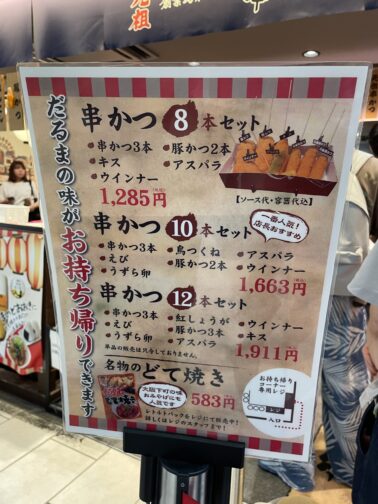 元祖
だるまの味がお持ち帰りできます
串かつ8本セット
串かつ3本
豚かつ2本
キス
アスパラ
ウインナー
1,285円(税込)
【ソース代・容器代込】
串かつ10本セット
一番人気!
店長おすすめ
串かつ3本
鳥つくね
アスパラ
えび
豚かつ2本
ウインナー
うずら卵
1,663円(税込)
串かつ12本セット
串かつ3本
紅しょうが
ウインナー
えび
豚かつ3本
キス
うずら卵
アスパラ
1,911円(税込)
単品の販売は只今しておりません。
名物のどて焼き
大阪下町の味
おみやげにも
人気です
583円
レトルトパックをレジにて販売中!
詳しくはレジのスタッフまで!
お持ち帰り
コーナー
専用レジ
レジ
入口